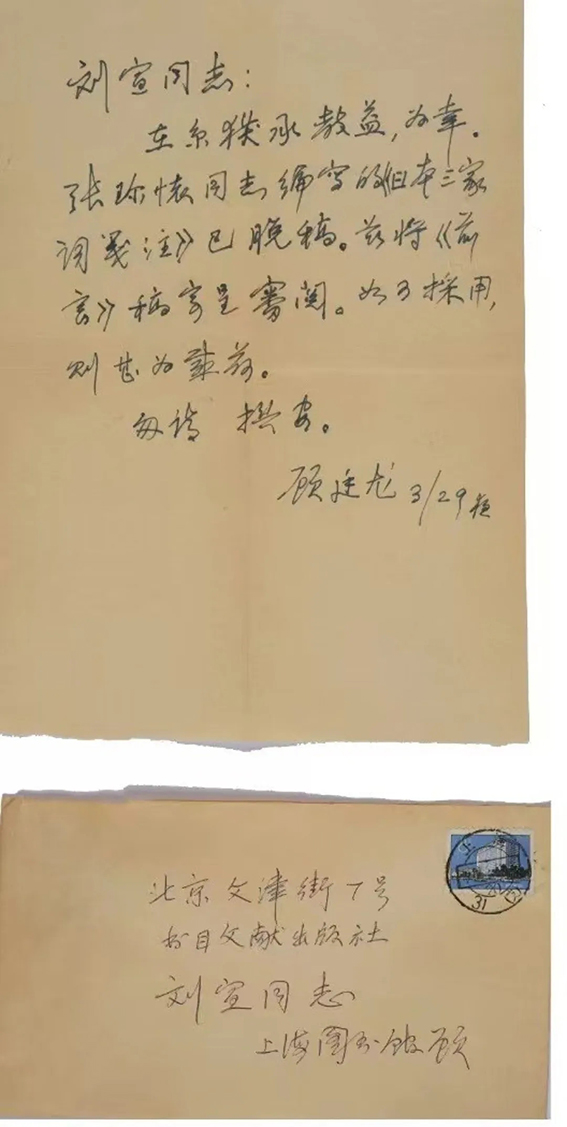 刘宣同志：
在京获承教益，为幸。
张珍怀同志编写的《日本三家
词笺注》已脱稿。兹将《前
言》稿寄呈审阅。如可採用，
则甚为感荷。
匆请 撰安。
顾廷龙 3/29
北京文津街7号
书目文献出版社
刘宣同志
上海图书馆顾
31